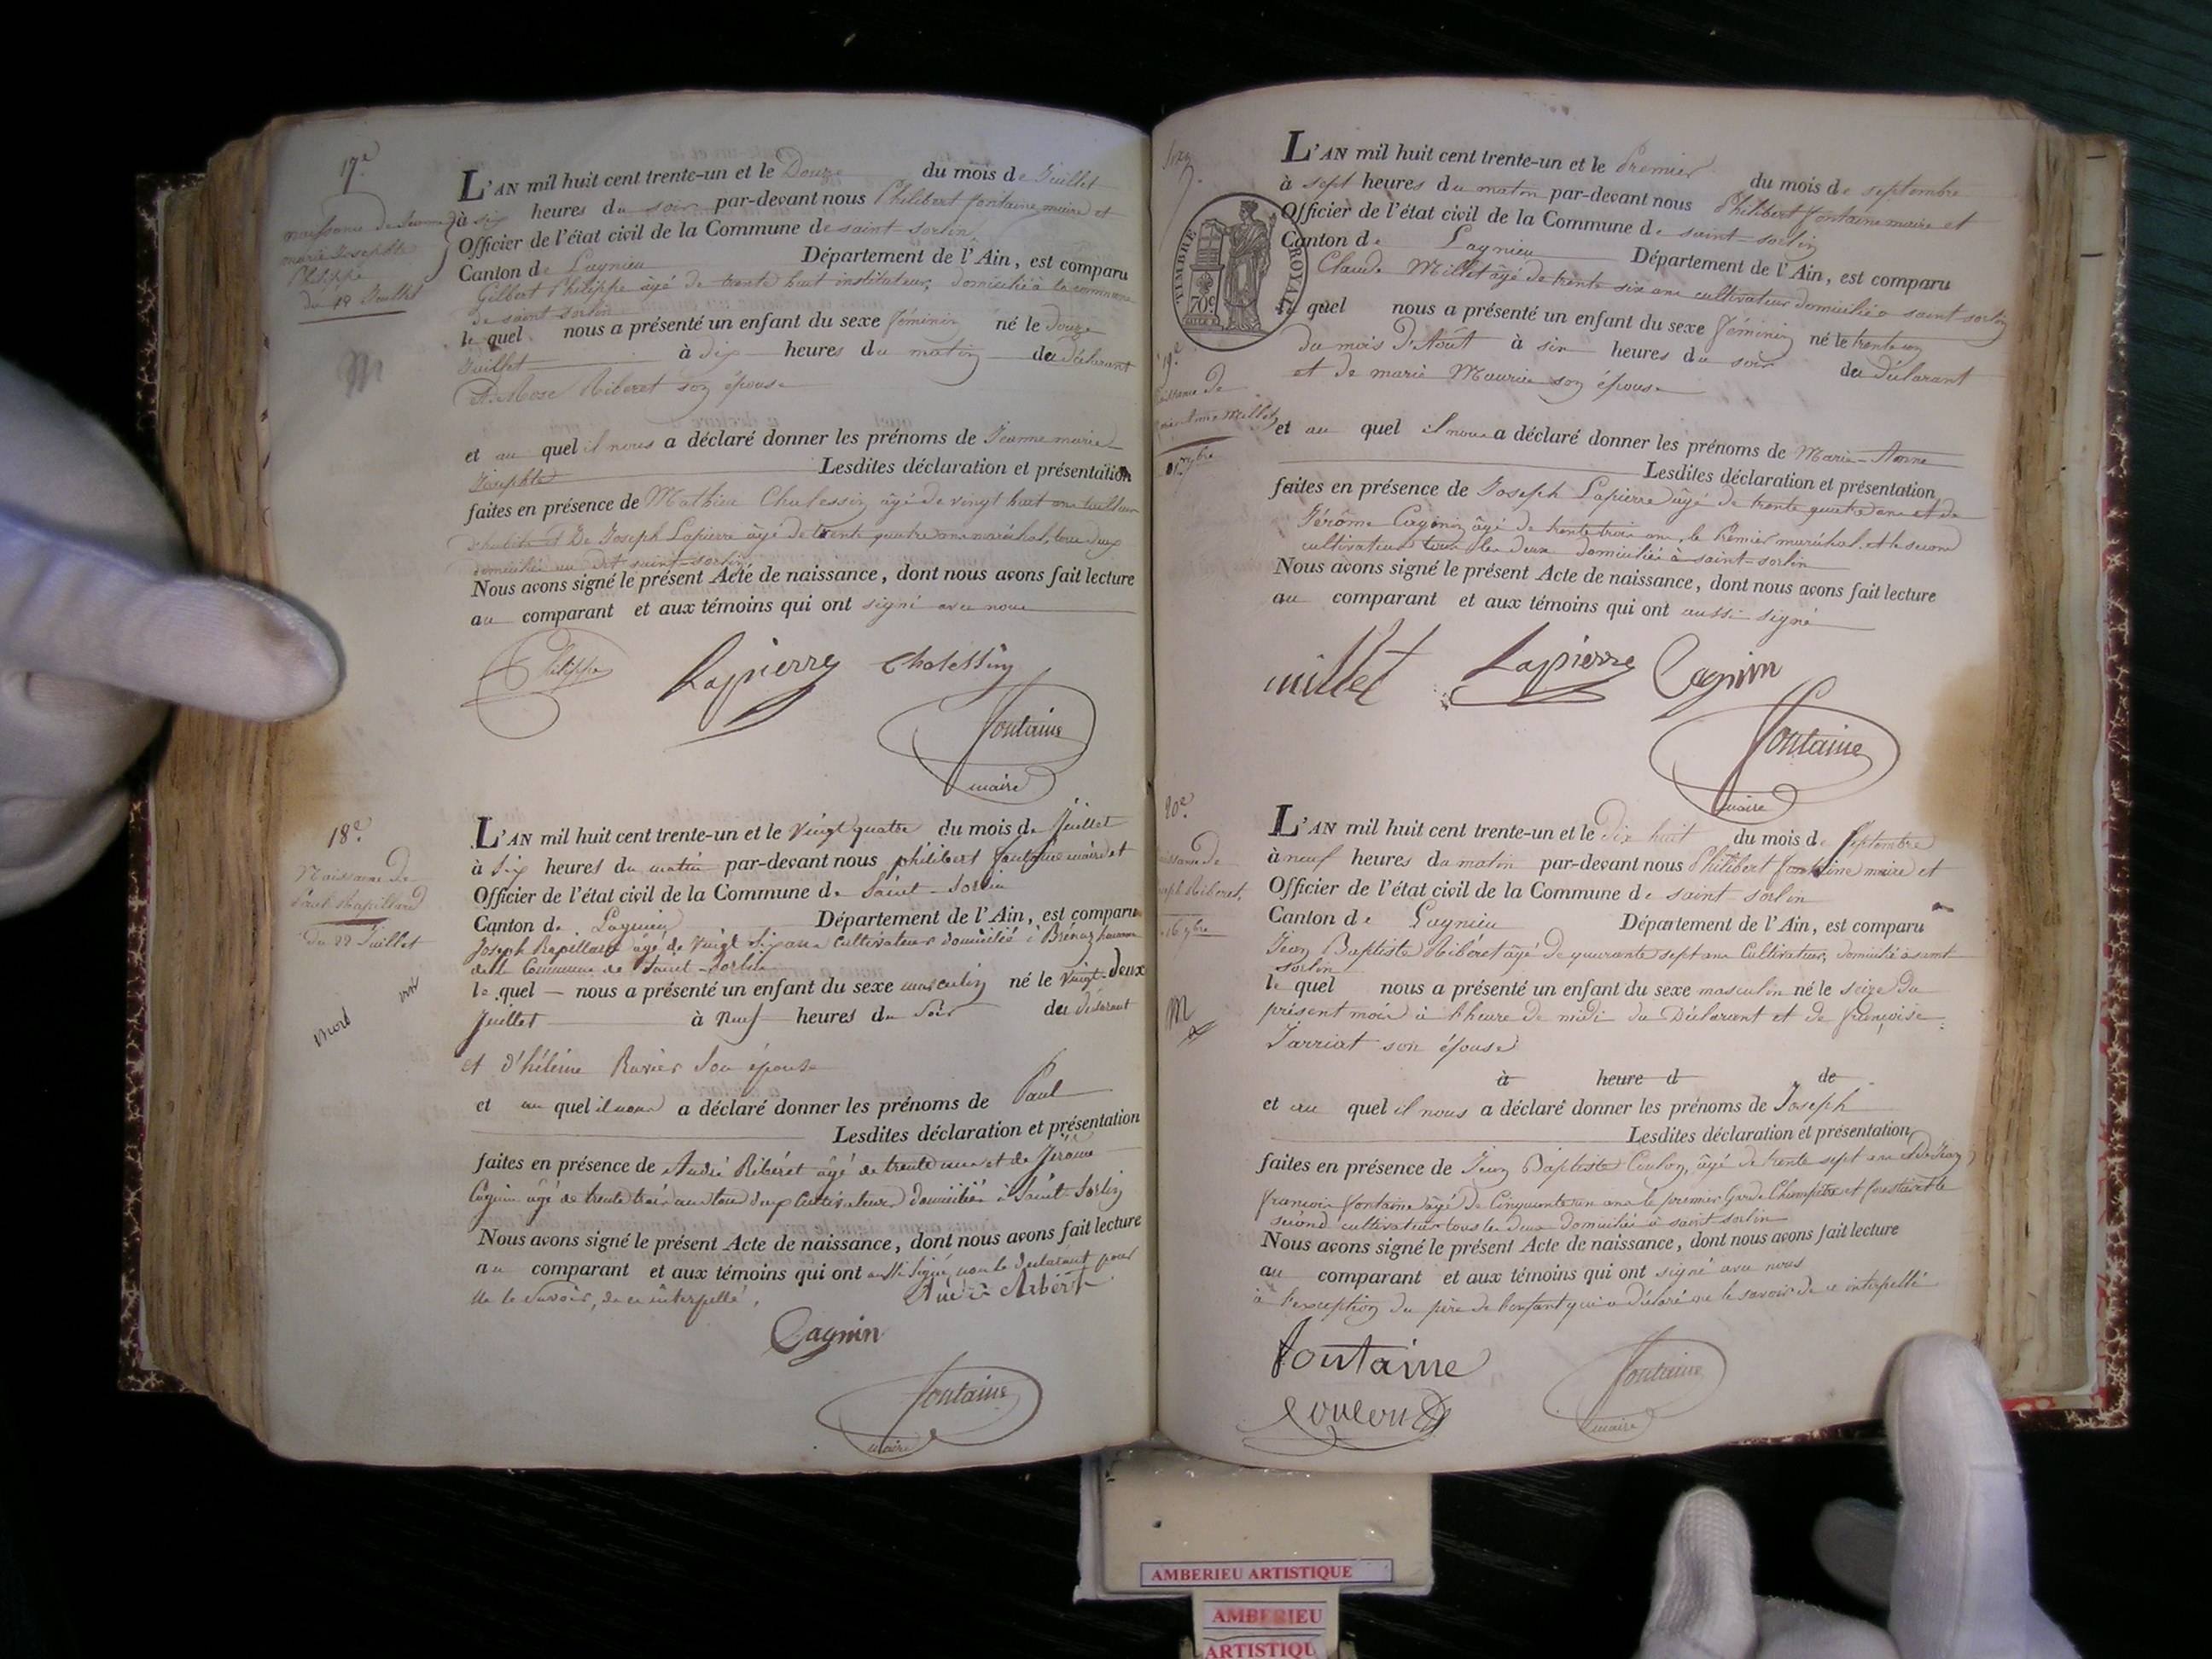 17e
naissance de Jeanne
marie Josephte
Philippe
du 12 Juillet
M
L'AN mil huit cent trente-un et le Douze du mois de Juillet
à six heures du soir par-devant nous Philibert fontaine maire et
Officier de l'état civil de la Commune de saint-sorlin
Canton de Lagnieu Département de l'Ain, est comparu
Gilbert Philippe âgé de trente huit instituteur, domicilié à la commune
de saint sorlin
le quel nous a présenté un enfant du sexe féminin né le douze
Juillet à dix heures du matin du déclarant
et de Rose Riberet son épouse
et au quel il nous a déclaré donner les prénoms de Jeanne marie
Josephte Lesdites déclaration et présentation
faites en présence de Mathieu Chalessin âgé de vingt huit ans tailleur
d'habits et De Joseph Lapierre âgé de trente quatre ans maréchal, tous deux
domiciliés au dit saint-sorlin
Nous avons signé le présent Acte de naissance, dont nous avons fait lecture
au comparant et aux témoins qui ont signé avec nous
Philippe Lapierre Chalessin
fontaine
maire
18e
Naissance de
Paul Rapillard
du 22 Juillet
mort
L'AN mil huit cent trente-un et le Vingt quatre du mois de Juillet
à Six heures du matin par-devant nous philibert fontaine maire et
Officier de l'état civil de la Commune de Saint-Sorlin
Canton de Lagnieu Département de l'Ain, est comparu
Joseph Rapillard âgé de Vingt Six ans Cultivateur domicilié à Brénaz hameau
de la Commune de Saint-Sorlin
le quel nous a présenté un enfant du sexe masculin né le Vingt-Deux
Juillet à Neuf heures du Soir du déclarant
et d'hélène Ravier Son épouse
et au quel il nous a déclaré donner les prénoms de Paul
Lesdites déclaration et présentation
faites en présence de André Riberet âgé de trente ans et de Jérôme
Cagnin âgé de trente trois ans tous deux Cultivateurs domiciliés à Saint-Sorlin
Nous avons signé le présent Acte de naissance, dont nous avons fait lecture
au comparant et aux témoins qui ont aussi Signé, non le déclarant pour
ne le Savoir, de ce interpellé.
Cagnin
fontaine
maire
TIMBRE ROYAL
70c
19e
L'AN mil huit cent trente-un et le Premier du mois de septembre
à sept heures du matin par-devant nous Philibert fontaine maire et
Officier de l'état civil de la Commune de saint-sorlin
Canton de Lagnieu Département de l'Ain, est comparu
Claude Millet âgé de trente six ans cultivateur domicilié a saint sorlin
le quel nous a présenté un enfant du sexe féminin né le trente un
du mois D'Août à six heures du soir du déclarant
et de marie Maurier son épouse
et au quel il nous a déclaré donner les prénoms de Marie-Anne
Lesdites déclaration et présentation
faites en présence de Joseph Lapierre âgé de trente quatre ans et de
Jérôme Cagnin âgé de trente trois ans, le Premier maréchal et le second
cultivateur tous les deux domiciliés à saint-sorlin
Nous avons signé le présent Acte de naissance, dont nous avons fait lecture
au comparant et aux témoins qui ont aussi signé
millet Lapierre Cagnin
fontaine
maire
20e
M
L'AN mil huit cent trente-un et le Dix huit du mois de Septembre
à neuf heures du matin par-devant nous Philibert fontaine maire et
Officier de l'état civil de la Commune de saint sorlin
Canton de Lagnieu Département de l'Ain, est comparu
Jean Baptiste Riberet âgé de quarante sept ans Cultivateur, domicilié à saint
sorlin
le quel nous a présenté un enfant du sexe masculin né le seize du
présent mois à l'heure de midi du Déclarant et de françoise
Jarriat son épouse
à heure d de
et au quel il nous a déclaré donner les prénoms de Joseph
Lesdites déclaration et présentation
faites en présence de Jean Baptiste Coulon, âgé de trente sept ans et de Jean
françois fontaine âgé de Cinquante un ans le premier Garde Champêtre et forestier et le
second cultivateur tous les deux domiciliés à saint sorlin
Nous avons signé le présent Acte de naissance, dont nous avons fait lecture
au comparant et aux témoins qui ont signé avec nous
à l'exception du père de l'enfant qui a déclaré ne le savoir de ce interpellé
fontaine
Coulon
fontaine
maire
AMBERIEU ARTISTIQUE
AMBERIEU
ARTISTIQU